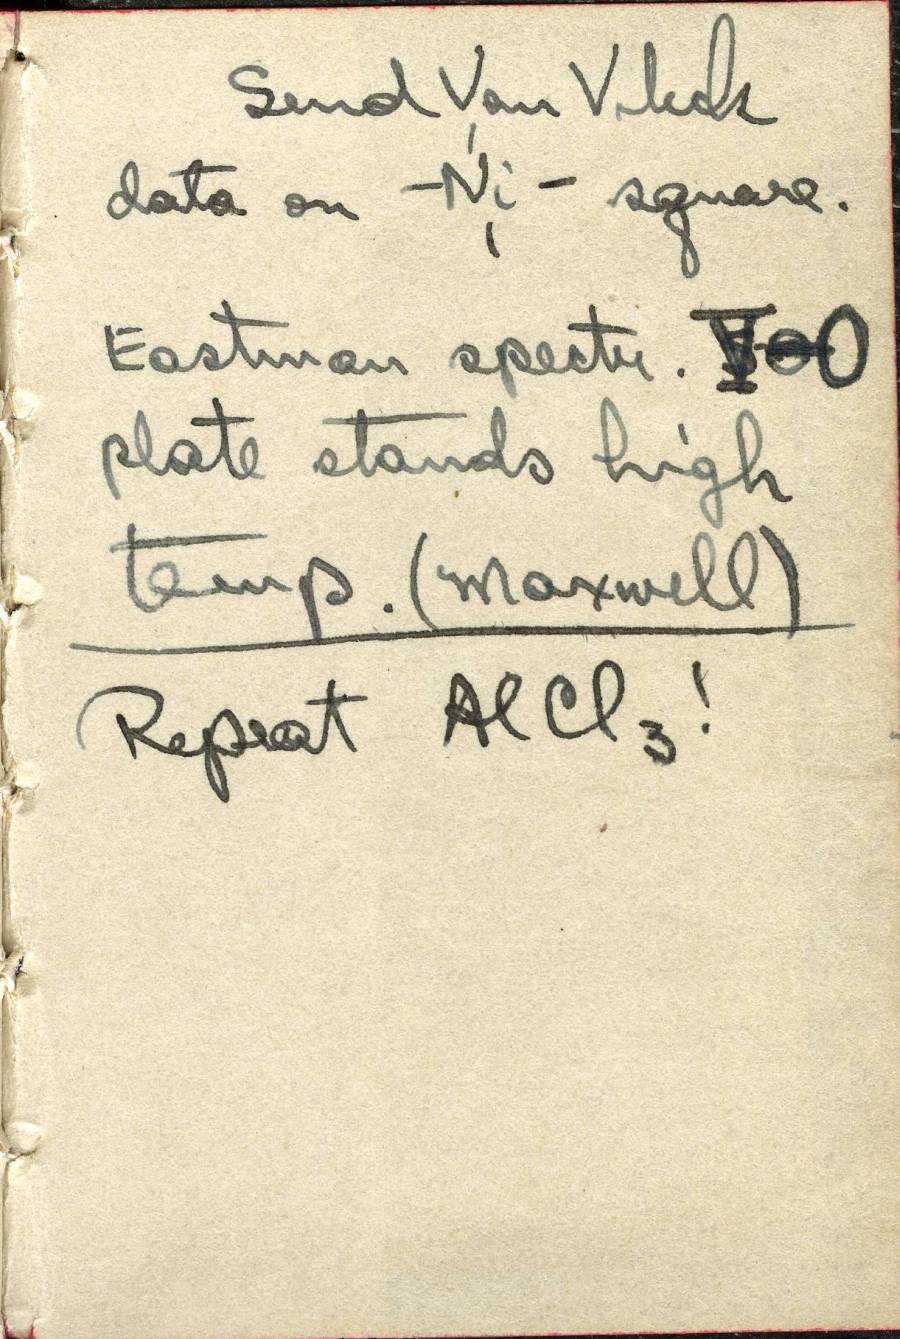 Send Van Vleck
data on -Ni- square.
Eastman spectr. I-O
plate stands high
temp. (Maxwell)
Repeat AlCl3!